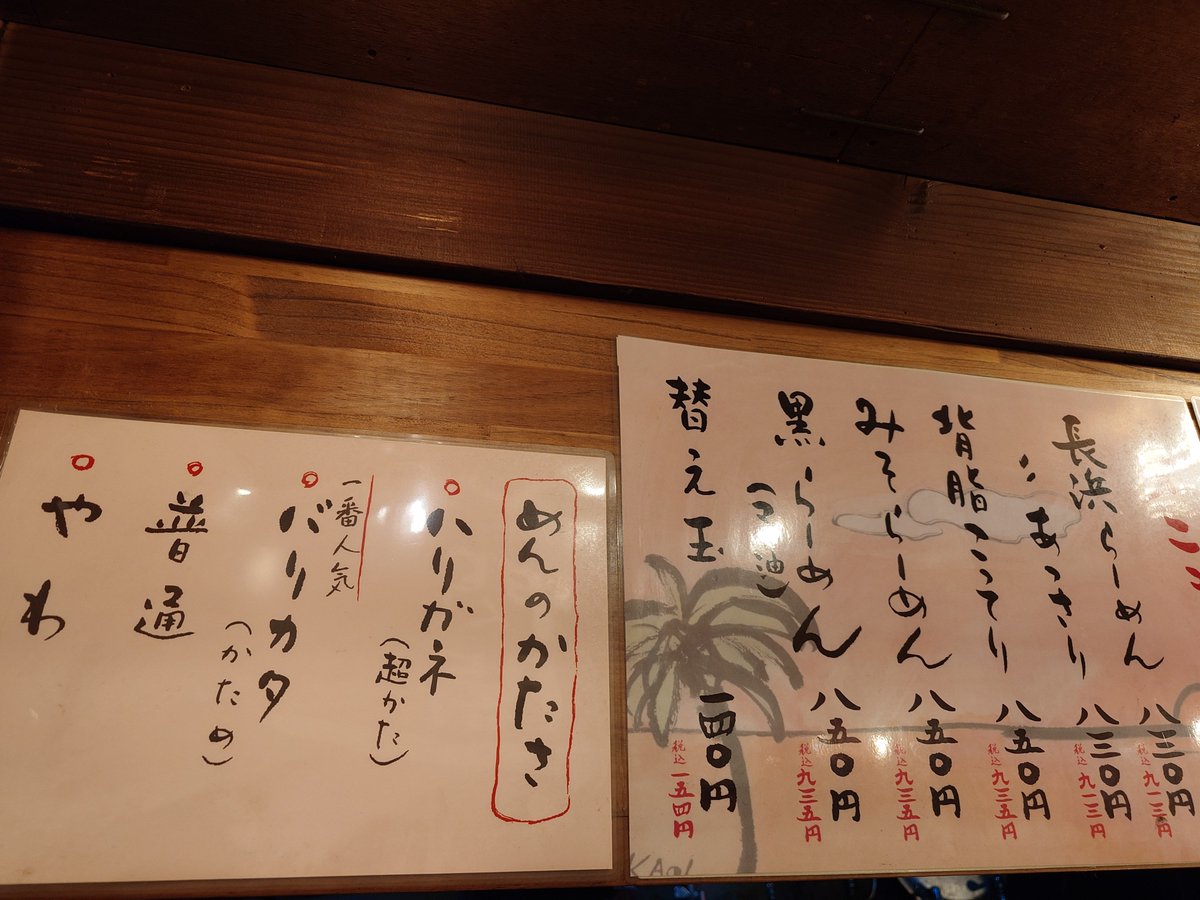 長浜らーめん 八三〇円
税込九一三円
〃あっさり 八三〇円
税込九一三円
背脂こってり 八五〇円
税込九三五円
みそらーめん 八五〇円
税込九三五円
黒らーめん 八五〇円
(マー油)
税込九三五円
替え玉 一四〇円
税込一五四円
めんのかたさ
ハリガネ
(超かた)
一番人気
バリカタ
(かため)
普通
やわ